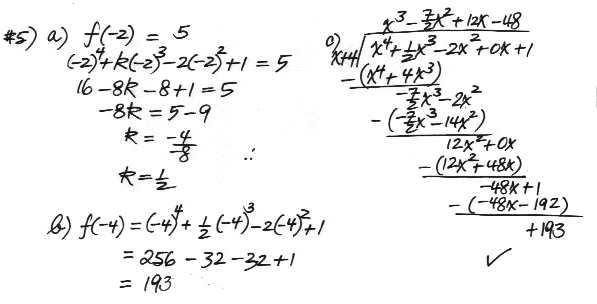 #5) a) f(-2) = 5
(-2)⁴+k(-2)³-2(-2)²+1 = 5
16-8k-8+1=5
-8k=5-9
k= -4/-8 ∴
k=1/2
b) f(-4)=(-4)⁴+ 1/2 (-4)³-2(-4)²+1
= 256 - 32 - 32 + 1
= 193
c) x³ - 7/2x² + 12x - 48
x+4 x⁴+1/2x³-2x²+0x+1
-(x⁴+4x³)
-7/2x³-2x²
-(-7/2x³-14x²)
12x²+0x
-(12x²+48x)
-48x+1
-(-48x-192)
+193
✓